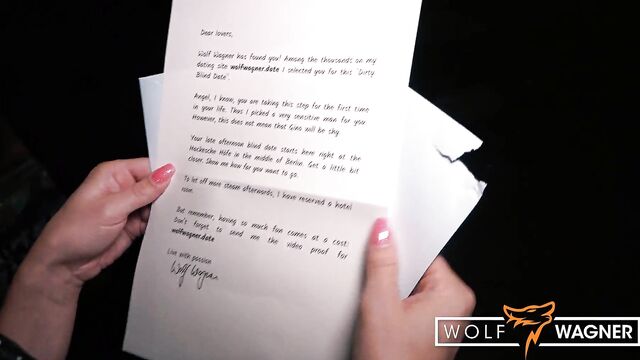 Dear lovers,
Wolf Wagner has found you! Among the thousands on my
dating site wolfwagner.date I selected you for this "Dirty
Blind Date".
Angel, I know, you are taking this step for the first time
in your life. Thus I picked a very sensitive man for you.
However, this does not mean that Gino will be shy.
Your late afternoon blind date starts here right at the
Hackesche Höfe in the middle of Berlin. Get a little bit
closer. Show me how far you want to go.
To let off more steam afterwards, I have reserved a hotel
room.
But remember, having so much fun comes at a cost:
Don't forget to send me the video proof for
wolfwagner.date
Live with passion
Wolf Wagner
WOLF WAGNER